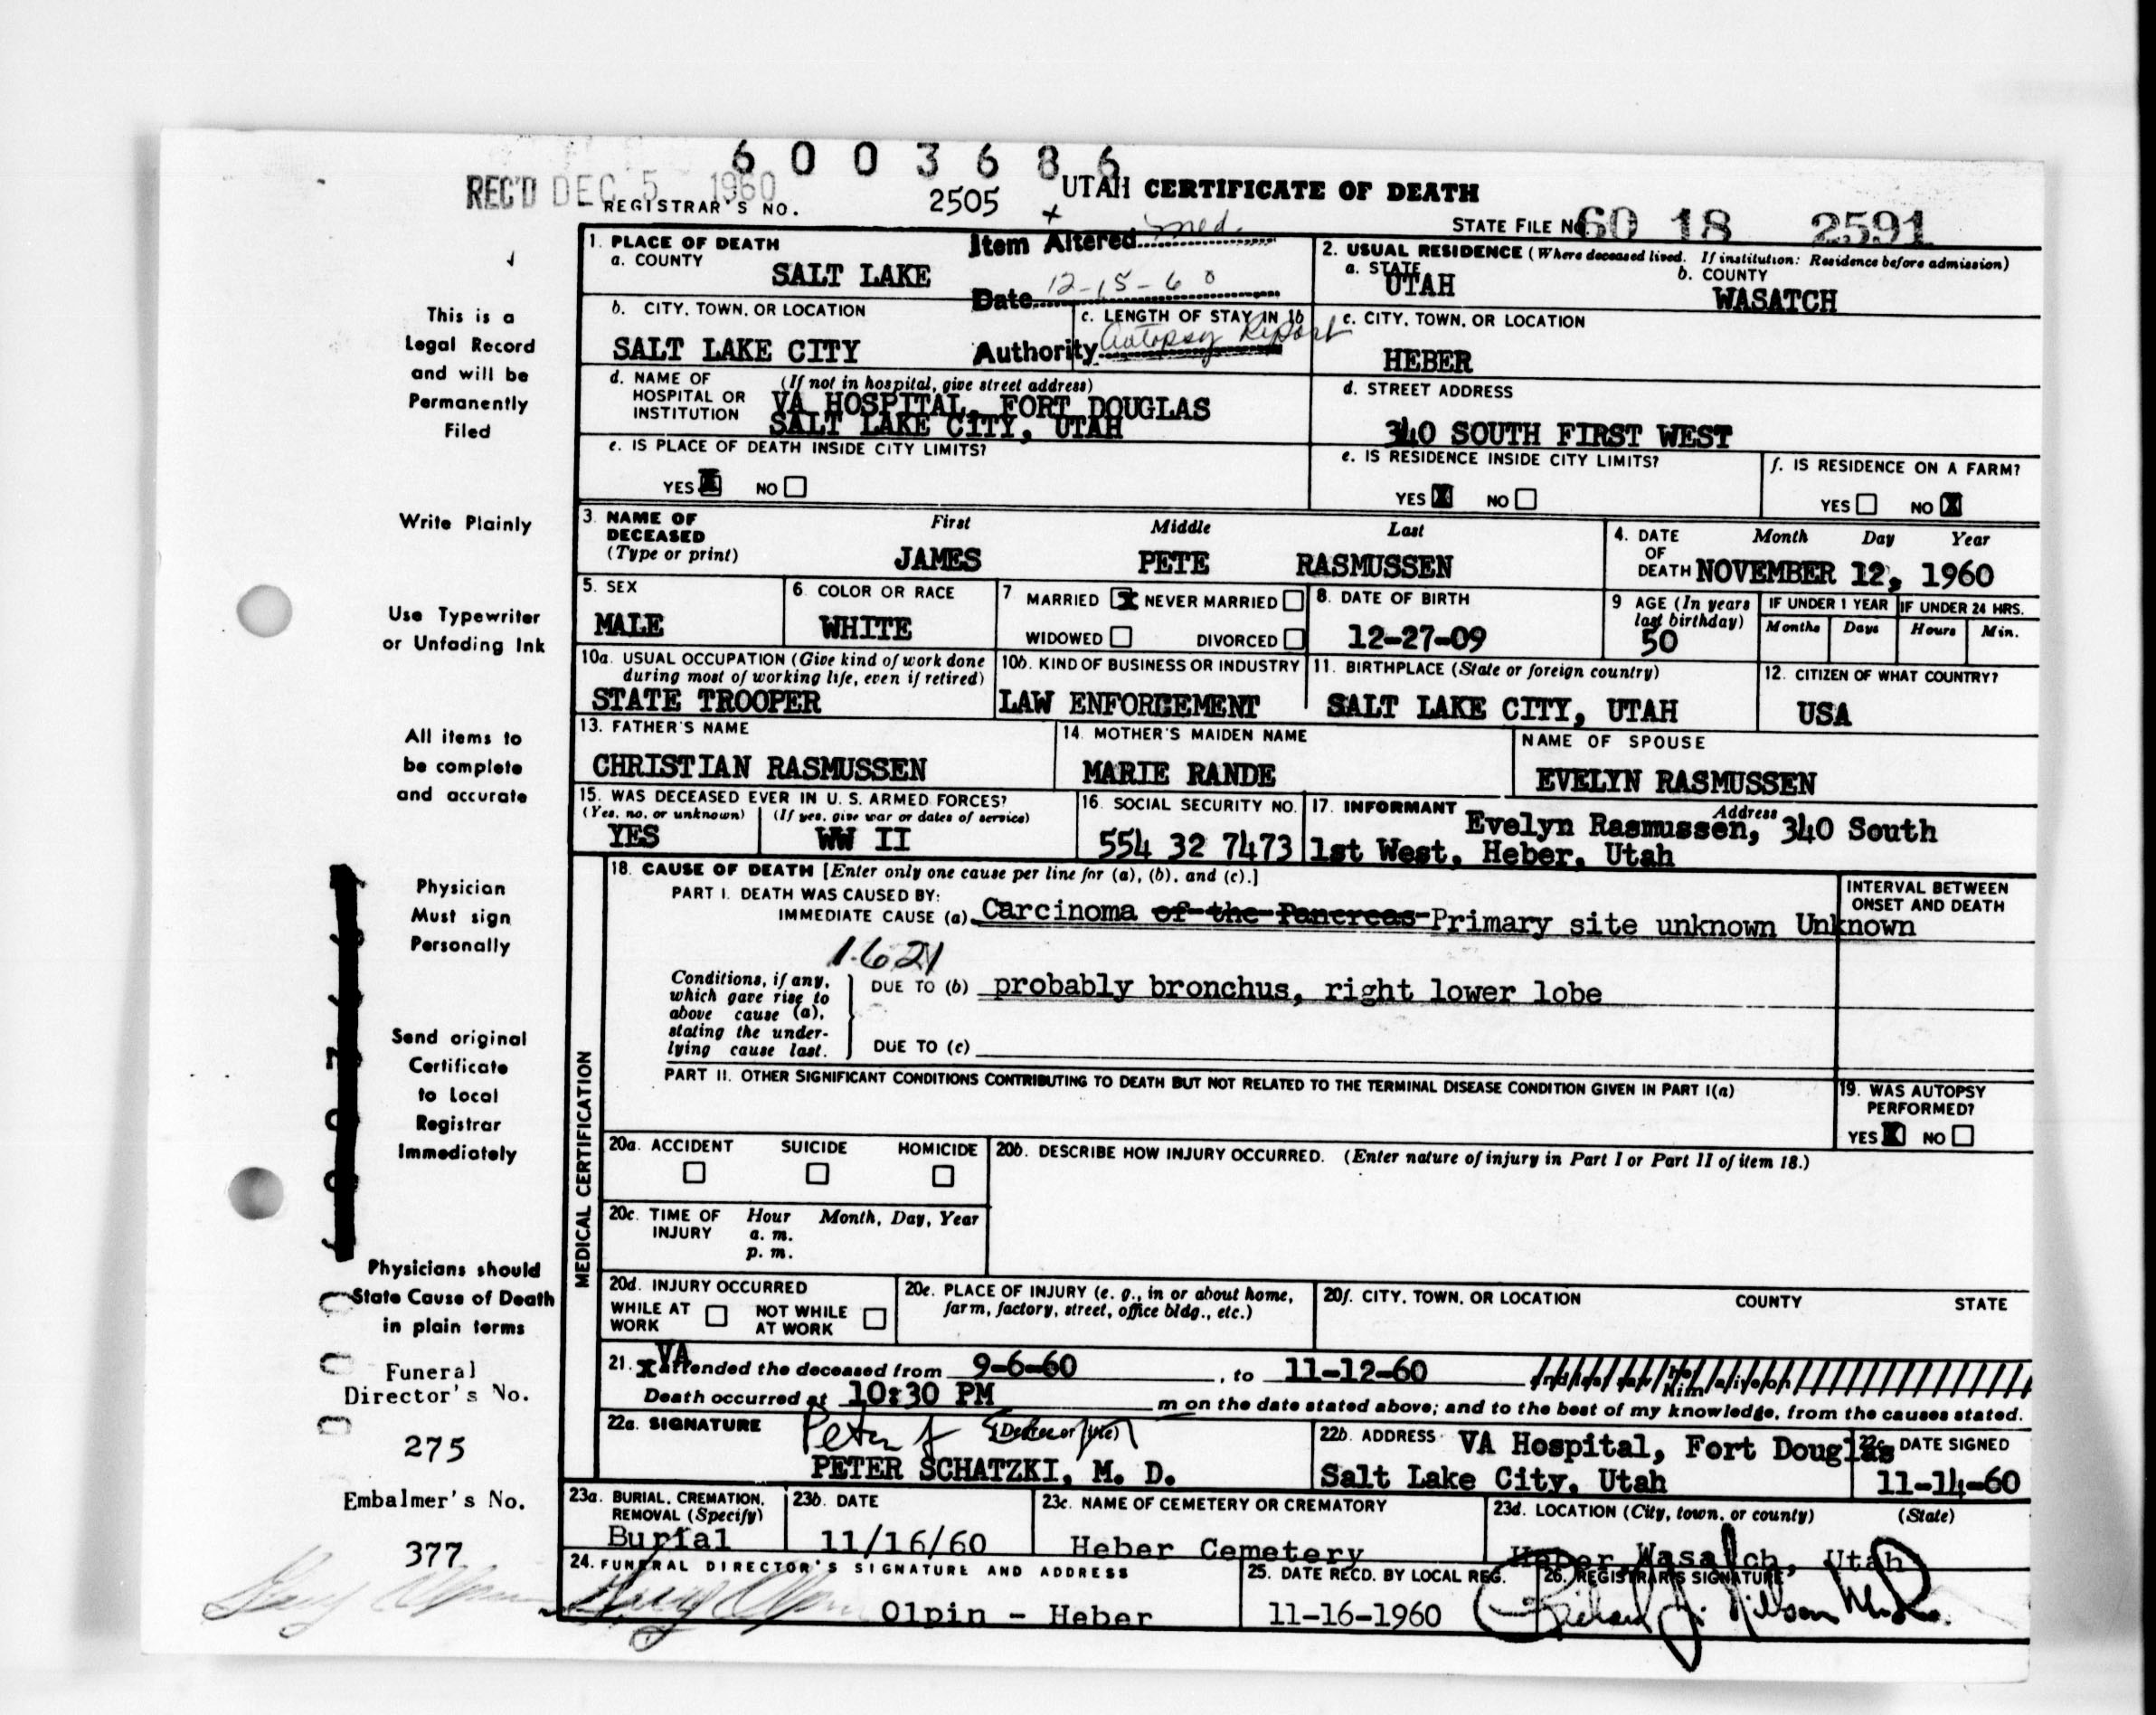 6 0 0 3 6 8 6
REC'D DEC 5 1960
REGISTRAR'S NO. 2505
UTAH CERTIFICATE OF DEATH
STATE FILE NO. 60 18 2591
Item Altered Med.
Date 12-15-60
Authority Autopsy Report
1. PLACE OF DEATH
a. COUNTY
SALT LAKE
2. USUAL RESIDENCE (Where deceased lived. If institution: Residence before admission)
a. STATE b. COUNTY
UTAH WASATCH
b. CITY, TOWN, OR LOCATION
SALT LAKE CITY
c. LENGTH OF STAY IN 1b
c. CITY, TOWN, OR LOCATION
HEBER
d. NAME OF HOSPITAL OR INSTITUTION (If not in hospital, give street address)
VA HOSPITAL, FORT DOUGLAS
SALT LAKE CITY, UTAH
d. STREET ADDRESS
340 SOUTH FIRST WEST
e. IS PLACE OF DEATH INSIDE CITY LIMITS?
YES X NO
e. IS RESIDENCE INSIDE CITY LIMITS?
YES X NO
f. IS RESIDENCE ON A FARM?
YES NO X
3. NAME OF DECEASED (Type or print)
First Middle Last
JAMES PETE RASMUSSEN
4. DATE OF DEATH Month Day Year
NOVEMBER 12, 1960
5. SEX
MALE
6. COLOR OR RACE
WHITE
7 MARRIED X NEVER MARRIED
WIDOWED DIVORCED
8. DATE OF BIRTH
12-27-09
9 AGE (In years last birthday)
50
IF UNDER 1 YEAR IF UNDER 24 HRS.
Months Days Hours Min.
10a. USUAL OCCUPATION (Give kind of work done during most of working life, even if retired)
STATE TROOPER
10b. KIND OF BUSINESS OR INDUSTRY
LAW ENFORCEMENT
11. BIRTHPLACE (State or foreign country)
SALT LAKE CITY, UTAH
12. CITIZEN OF WHAT COUNTRY?
USA
13. FATHER'S NAME
CHRISTIAN RASMUSSEN
14. MOTHER'S MAIDEN NAME
MARIE RANDE
NAME OF SPOUSE
EVELYN RASMUSSEN
15. WAS DECEASED EVER IN U. S. ARMED FORCES?
(Yes, no, or unknown) (If yes, give war or dates of service)
YES WW II
16. SOCIAL SECURITY NO.
554 32 7473
17. INFORMANT Address
Evelyn Rasmussen, 340 South
1st West, Heber, Utah
18. CAUSE OF DEATH [Enter only one cause per line for (a), (b), and (c).]
PART I. DEATH WAS CAUSED BY:
IMMEDIATE CAUSE (a) Carcinoma of the Pancreas Primary site unknown Unknown
INTERVAL BETWEEN ONSET AND DEATH
1.621
Conditions, if any, which gave rise to above cause (a), stating the underlying cause last.
DUE TO (b) probably bronchus, right lower lobe
DUE TO (c)
PART II. OTHER SIGNIFICANT CONDITIONS CONTRIBUTING TO DEATH BUT NOT RELATED TO THE TERMINAL DISEASE CONDITION GIVEN IN PART I(a)
19. WAS AUTOPSY PERFORMED?
YES X NO
MEDICAL CERTIFICATION
20a. ACCIDENT SUICIDE HOMICIDE
20b. DESCRIBE HOW INJURY OCCURRED. (Enter nature of injury in Part I or Part II of item 18.)
20c. TIME OF INJURY Hour Month, Day, Year
a. m.
p. m.
20d. INJURY OCCURRED
WHILE AT WORK NOT WHILE AT WORK
20e. PLACE OF INJURY (e. g., in or about home, farm, factory, street, office bldg., etc.)
20f. CITY, TOWN, OR LOCATION COUNTY STATE
21. X VA attended the deceased from 9-6-60, to 11-12-60
Death occurred at 10:30 PM m on the date stated above; and to the best of my knowledge, from the causes stated.
22a. SIGNATURE (Degree or title)
Peter
PETER SCHATZKI, M. D.
22b. ADDRESS
VA Hospital, Fort Douglas
Salt Lake City, Utah
22c. DATE SIGNED
11-14-60
23a. BURIAL, CREMATION, REMOVAL (Specify)
Burial
23b. DATE
11/16/60
23c. NAME OF CEMETERY OR CREMATORY
Heber Cemetery
23d. LOCATION (City, town, or county) (State)
Heber, Wasatch, Utah
24. FUNERAL DIRECTOR'S SIGNATURE AND ADDRESS
Olpin - Heber
25. DATE RECD. BY LOCAL REG.
11-16-1960
26. REGISTRAR'S SIGNATURE
This is a
Legal Record
and will be
Permanently
Filed
Write Plainly
Use Typewriter
or Unfading Ink
All items to
be complete
and accurate
Physician
Must sign
Personally
Send original
Certificate
to Local
Registrar
Immediately
Physicians should
State Cause of Death
in plain terms
Funeral
Director's No.
275
Embalmer's No.
377